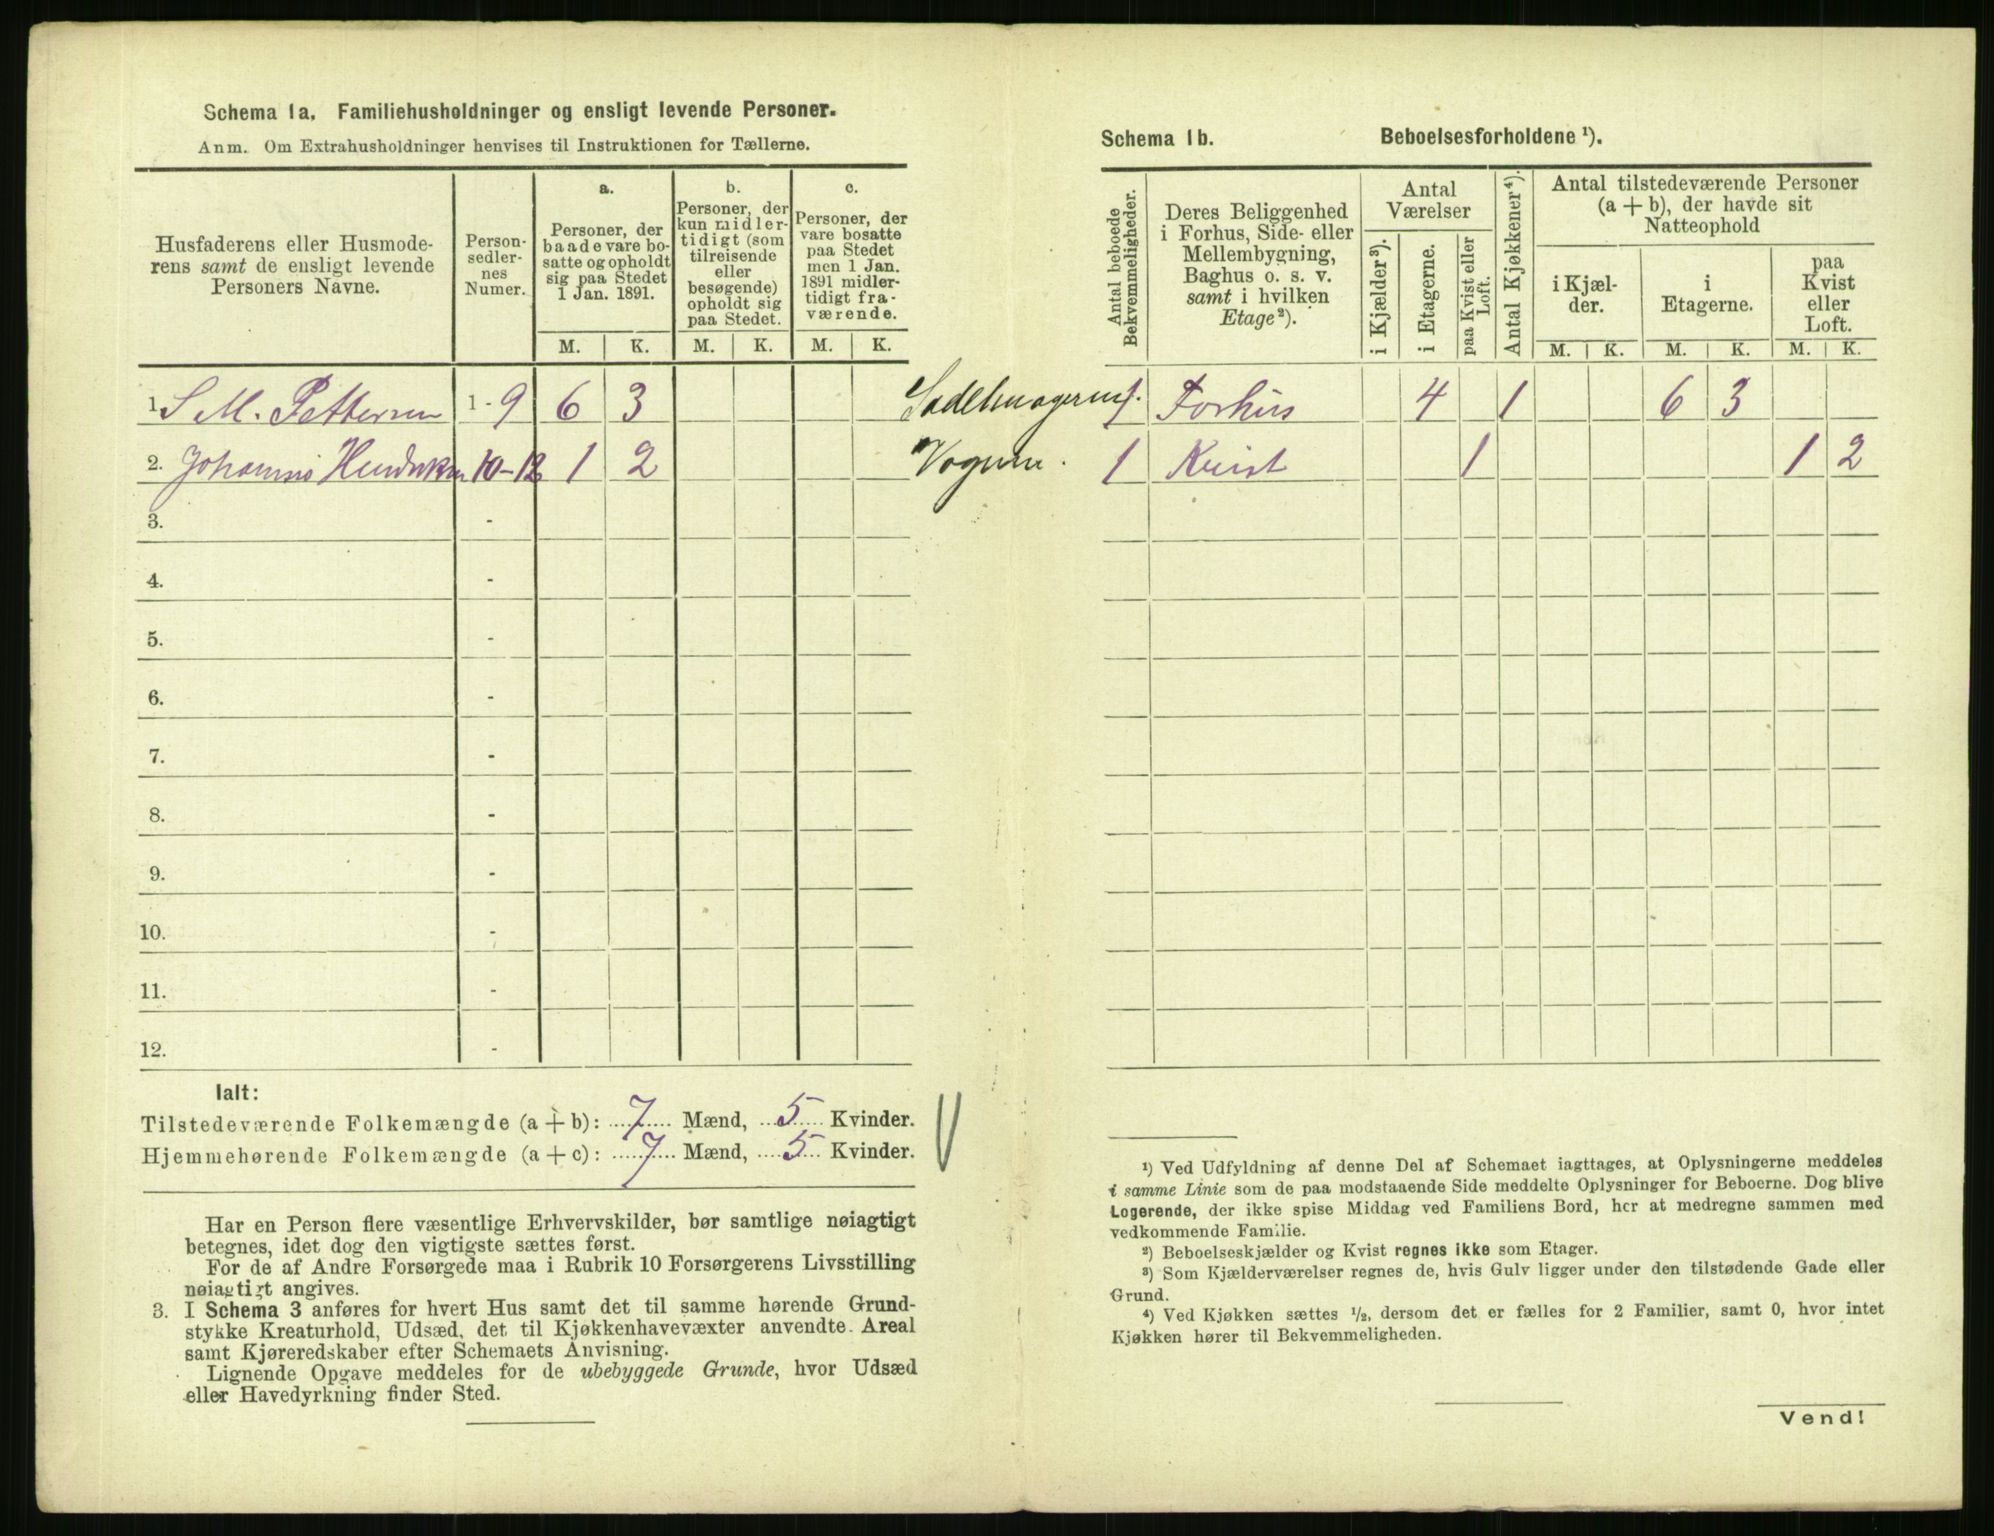 Schema 1a. Familiehusholdninger og ensligt levende Personer.
Anm. Om Extrahusholdninger henvises til Instruktionen for Tællerne.
Husfaderens eller Husmode-
rens samt de ensligt levende
Personers Navne.
Person-
sedler-
nes
Numer.
a.
Personer, der
baade vare bo-
satte og opholdt
sig paa Stedet
1 Jan. 1891.
b.
Personer, der
kun midler-
tidigt (som
tilreisende
eller
besøgende)
opholdt sig
paa Stedet.
c.
Personer, der
vare bosatte
paa Stedet
men 1 Jan.
1891 midler-
tidigt fra-
værende.
M. K. M. K. M. K.
1. S M. Pettersen 1-9 6 3
2. Johannes Hendriksen 10-12 1 2
3. -
4. -
5. -
6. -
7. -
8. -
9. -
10. -
11. -
12. -
Ialt:
Tilstedeværende Folkemængde (a + b): 7 Mænd, 5 Kvinder.
Hjemmehørende Folkemængde (a + c): 7 Mænd, 5 Kvinder.
Har en Person flere væsentlige Erhvervskilder, bør samtlige nøiagtigt
betegnes, idet dog den vigtigste sættes først.
For de af Andre Forsørgede maa i Rubrik 10 Forsørgerens Livsstilling
nøiagtigt angives.
3. I Schema 3 anføres for hvert Hus samt det til samme hørende Grund-
stykke Kreaturhold, Udsæd, det til Kjøkkenhavevæxter anvendte Areal
samt Kjøreredskaber efter Schemaets Anvisning.
Lignende Opgave meddeles for de ubebyggede Grunde, hvor Udsæd
eller Havedyrkning finder Sted.
Schema 1b. Beboelsesforholdene ¹).
Antal beboede
Bekvemmeligheder.
Deres Beliggenhed
i Forhus, Side- eller
Mellembygning,
Baghus o. s. v.
samt i hvilken
Etage²).
Antal
Værelser
i Kjælder³).
i Etagerne.
paa Kvist eller
Loft.
Antal Kjøkkener⁴).
Antal tilstedeværende Personer
(a + b), der havde sit
Natteophold
i Kjæl-
der.
i
Etagerne.
paa
Kvist
eller
Loft.
M. K. M. K. M. K.
1 Forhus 4 1 6 3
1 Kvist 1 1 2
¹) Ved Udfyldning af denne Del af Schemaet iagttages, at Oplysningerne meddeles
i samme Linie som de paa modstaaende Side meddelte Oplysninger for Beboerne. Dog blive
Logerende, der ikke spise Middag ved Familiens Bord, her at medregne sammen med
vedkommende Familie.
²) Beboelseskjælder og Kvist regnes ikke som Etager.
³) Som Kjælderværelser regnes de, hvis Gulv ligger under den tilstødende Gade eller
Grund.
⁴) Ved Kjøkken sættes ½, dersom det er fælles for 2 Familier, samt 0, hvor intet
Kjøkken hører til Bekvemmeligheden.
Vend!